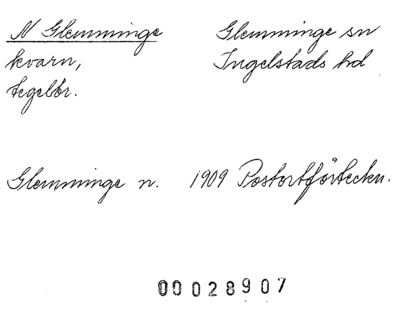 N Glemminge
kvarn,
tegelbr.
Glemminge sn
Ingelstads hd
Glemminge n. 1909 Postortförteckn.
00028907